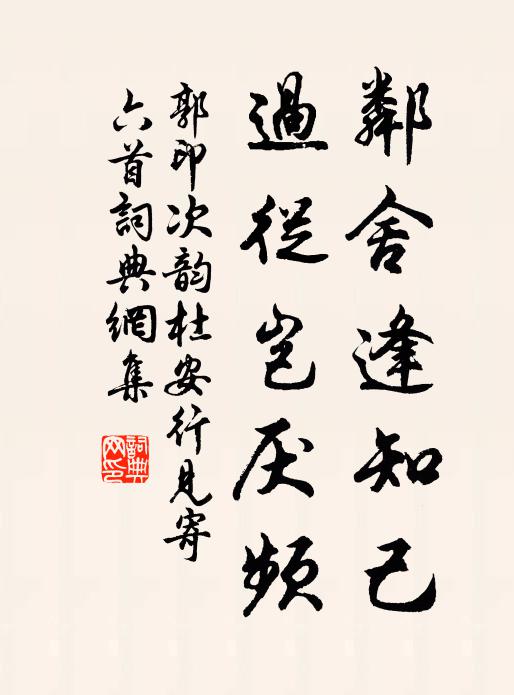 鄰舍逢知己
過從岂厌頻
郭印次韵杜安行見寄
六首詞典網集
詞典网印